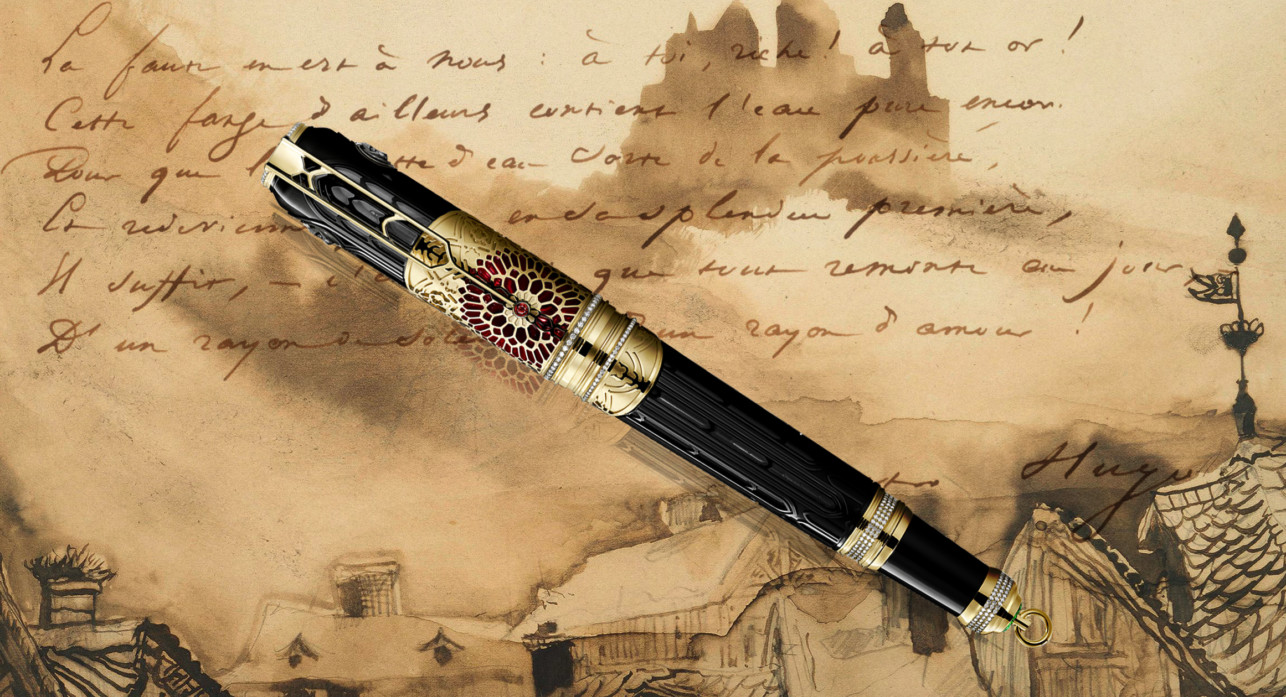 La faute en est à nous : à toi, riche ! à ton or !
Cette fange d'ailleurs contient l'eau pure encor.
Pour que la goutte d'eau sorte de la poussière,
Et redevienne en sa splendeur première,
Il suffit, c'est que tout remonte au jour,
D'un rayon de soleil d'un rayon d'amour !
Hugo